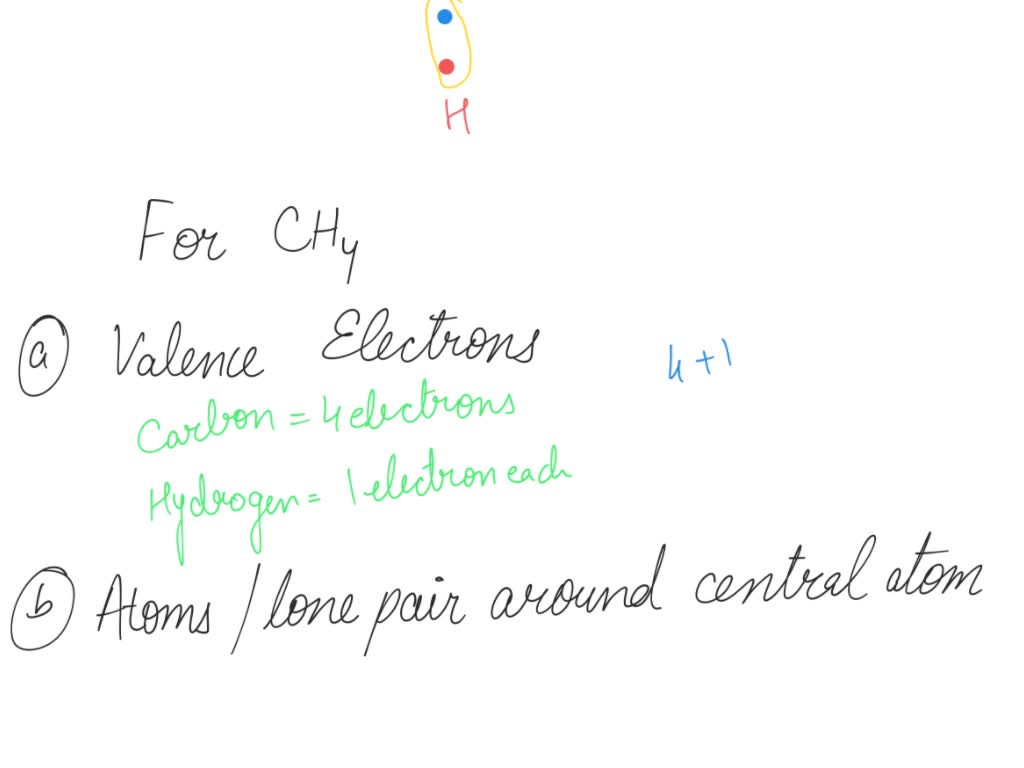 H
For CH4
a Valence Electrons
4+1
Carbon = 4 electrons
Hydrogen = 1 electron each
b Atoms / lone pair around central atom